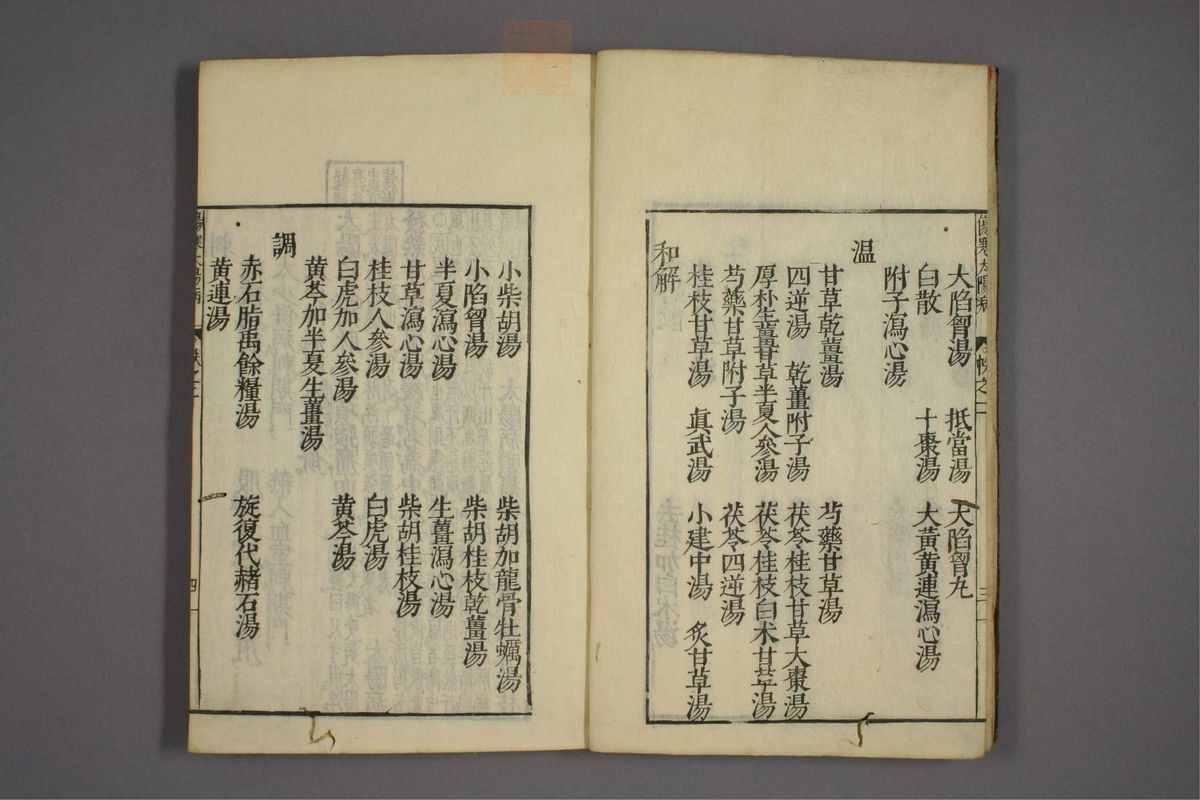 大陷胷湯　抵當湯　大陷胷丸
白散　十棗湯　大黃黃連瀉心湯
附子瀉心湯
温
甘草乾薑湯　芍藥甘草湯
四逆湯　乾薑附子湯　茯苓桂枝甘草大棗湯
厚朴生薑甘草半夏人參湯　茯苓桂枝白术甘草湯
芍藥甘草附子湯　茯苓四逆湯
桂枝甘草湯　眞武湯　小建中湯　炙甘草湯
和解
小柴胡湯　柴胡加龍骨牡蠣湯
小陷胷湯　柴胡桂枝乾薑湯
半夏瀉心湯　生薑瀉心湯
甘草瀉心湯　柴胡桂枝湯
桂枝人參湯　白虎湯
白虎加人參湯　黃芩湯
黃芩加半夏生薑湯
調
赤石脂禹餘糧湯　旋復代赭石湯
黃連湯
傷寒太陽病
三
四